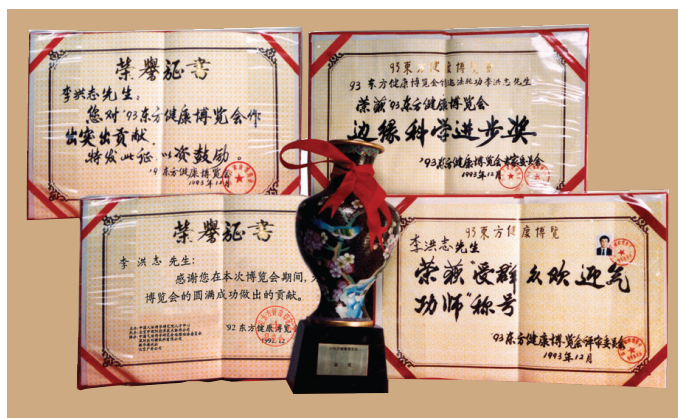 荣誉证书
李洪志先生:
您对'93东方健康博览会作
出突出贡献,
特发此证 以资鼓励。
'9 东方健康博览会
1993年12月
93東方健康博览会
'93 东方健康博览会 法轮功李洪志先生
荣获'93东方健康博览会
边缘科学进步奖
'93东方健康博览会 委员会
1993年12月
荣誉证书
李洪志 先生:
感谢您在本次博览会期间,为
博览会的圆满成功做出的贡献。
'92东方健康博览会
1992.12
93東方健康博览
李洪志先生
荣获"受群众欢迎气
功师"称号
'93东方健康博览会评审委员会
1993年12月